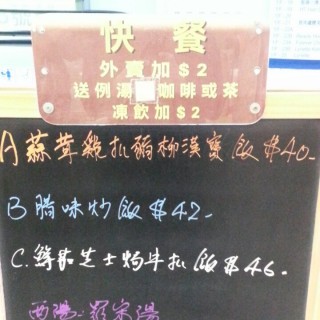 快餐
外賣加$2
送例湯 咖啡或茶
凍飲加$2
A 蒜茸雞扒豬柳漢寶飯 $40-
B 腊味炒飯 $42-
C. 鮮茄芝士焗牛扒飯 $46-
西湯:羅宋湯